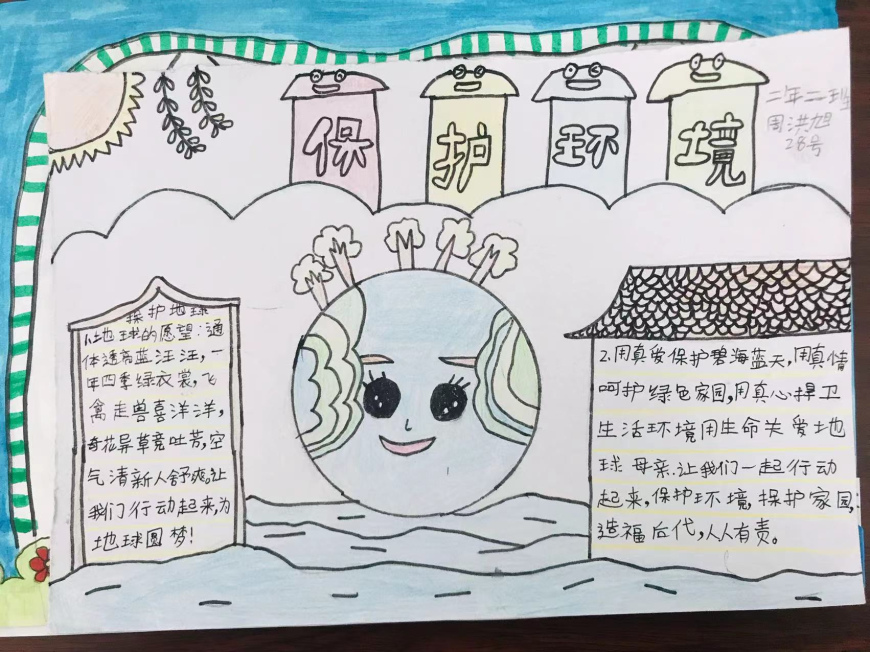 保护环境
二年二班
周洪旭
28号
保护地球
1、地球的愿望：通
体透亮蓝汪汪，一
年四季绿衣裳，飞
禽走兽喜洋洋，
奇花异草竞吐芳，空
气清新人舒爽。让
我们行动起来，为
地球圆梦！
2、用真爱保护碧海蓝天，用真情
呵护绿色家园，用真心捍卫
生活环境用生命关爱地
球母亲.让我们一起行动
起来，保护环境，保护家园，:
造福后代，人人有责。